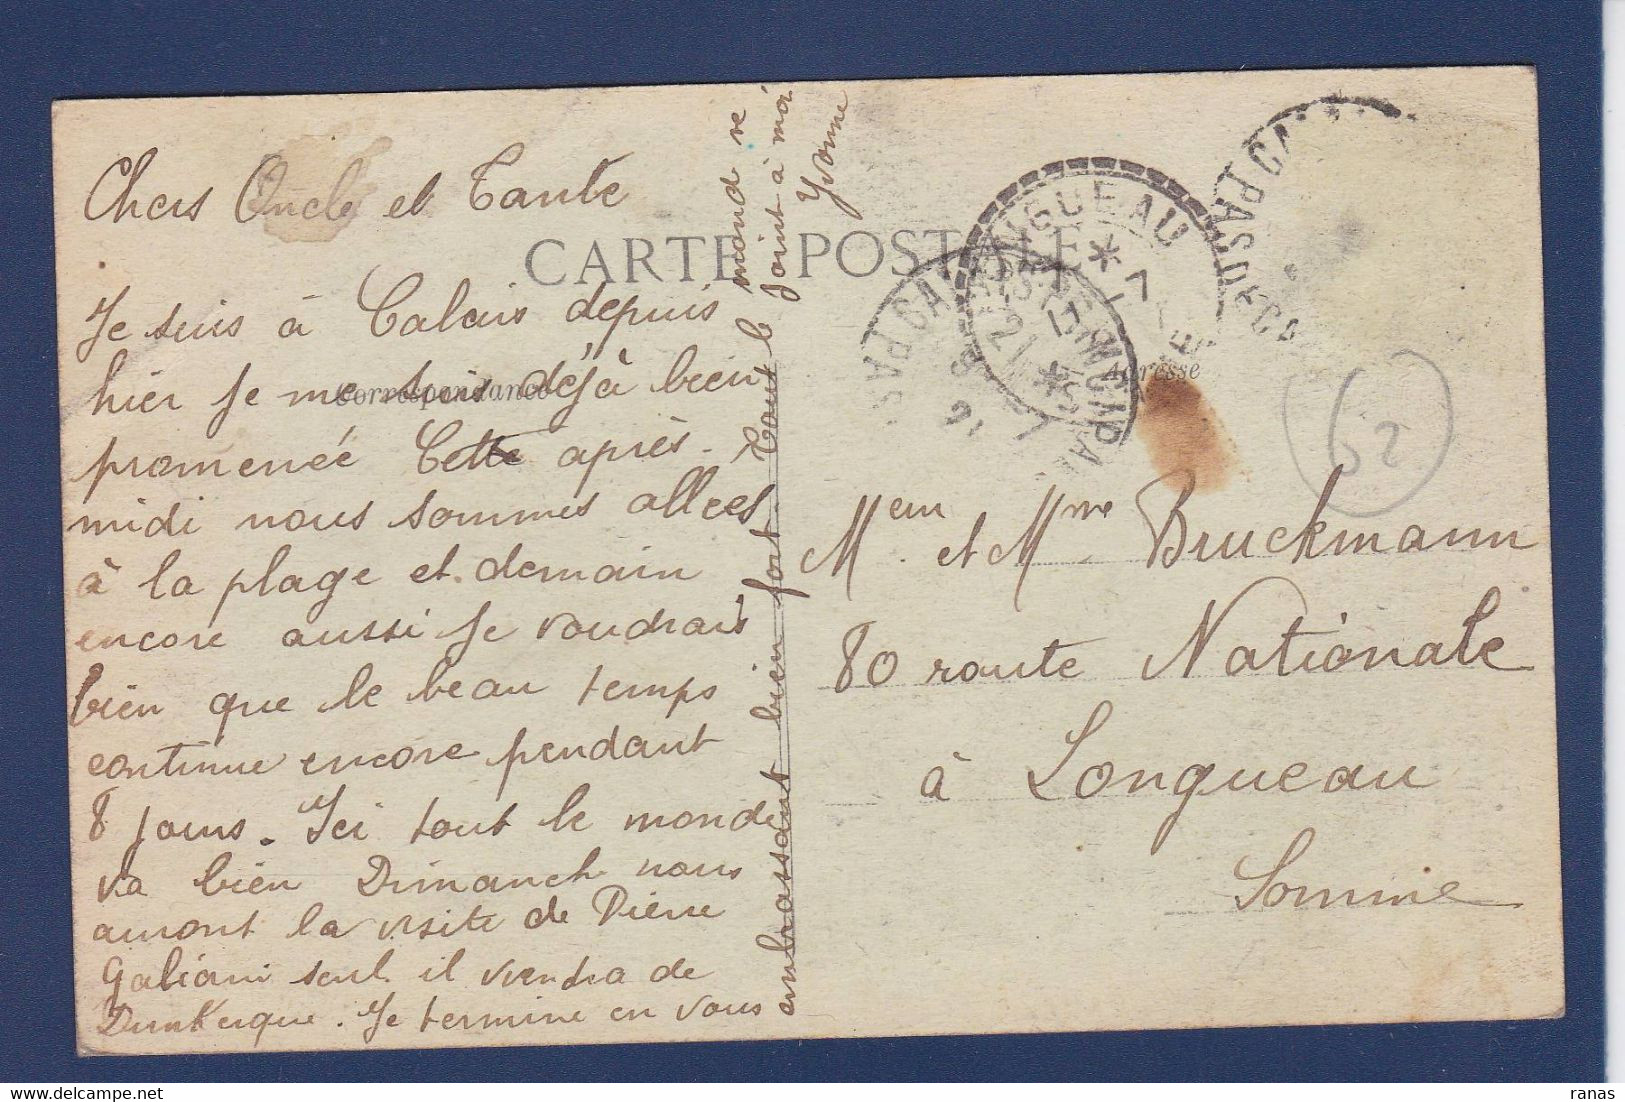 Chers Oncle et Tante
CARTE POSTALE
Je suis à Calais depuis
hier je me suis déjà bien
Correspondance
promenée Cette après-
midi nous sommes allées
à la plage et demain
encore aussi je voudrais
bien que le beau temps
continue encore pendant
8 jours. Ici tout le monde
va bien Dimanche nous
auront la visite de Pierre
Galiani seul il viendra de
Dunkerque. Je termine en vous
embrassant bien fort. Tout le
mond se
joint à moi
Yvonne
LONGUEAU
7
21
CALAIS
PAS DE CA
Adresse
62
Mem et Mme Bruckmann
80 route Nationale
à Longueau
Somme
ranas